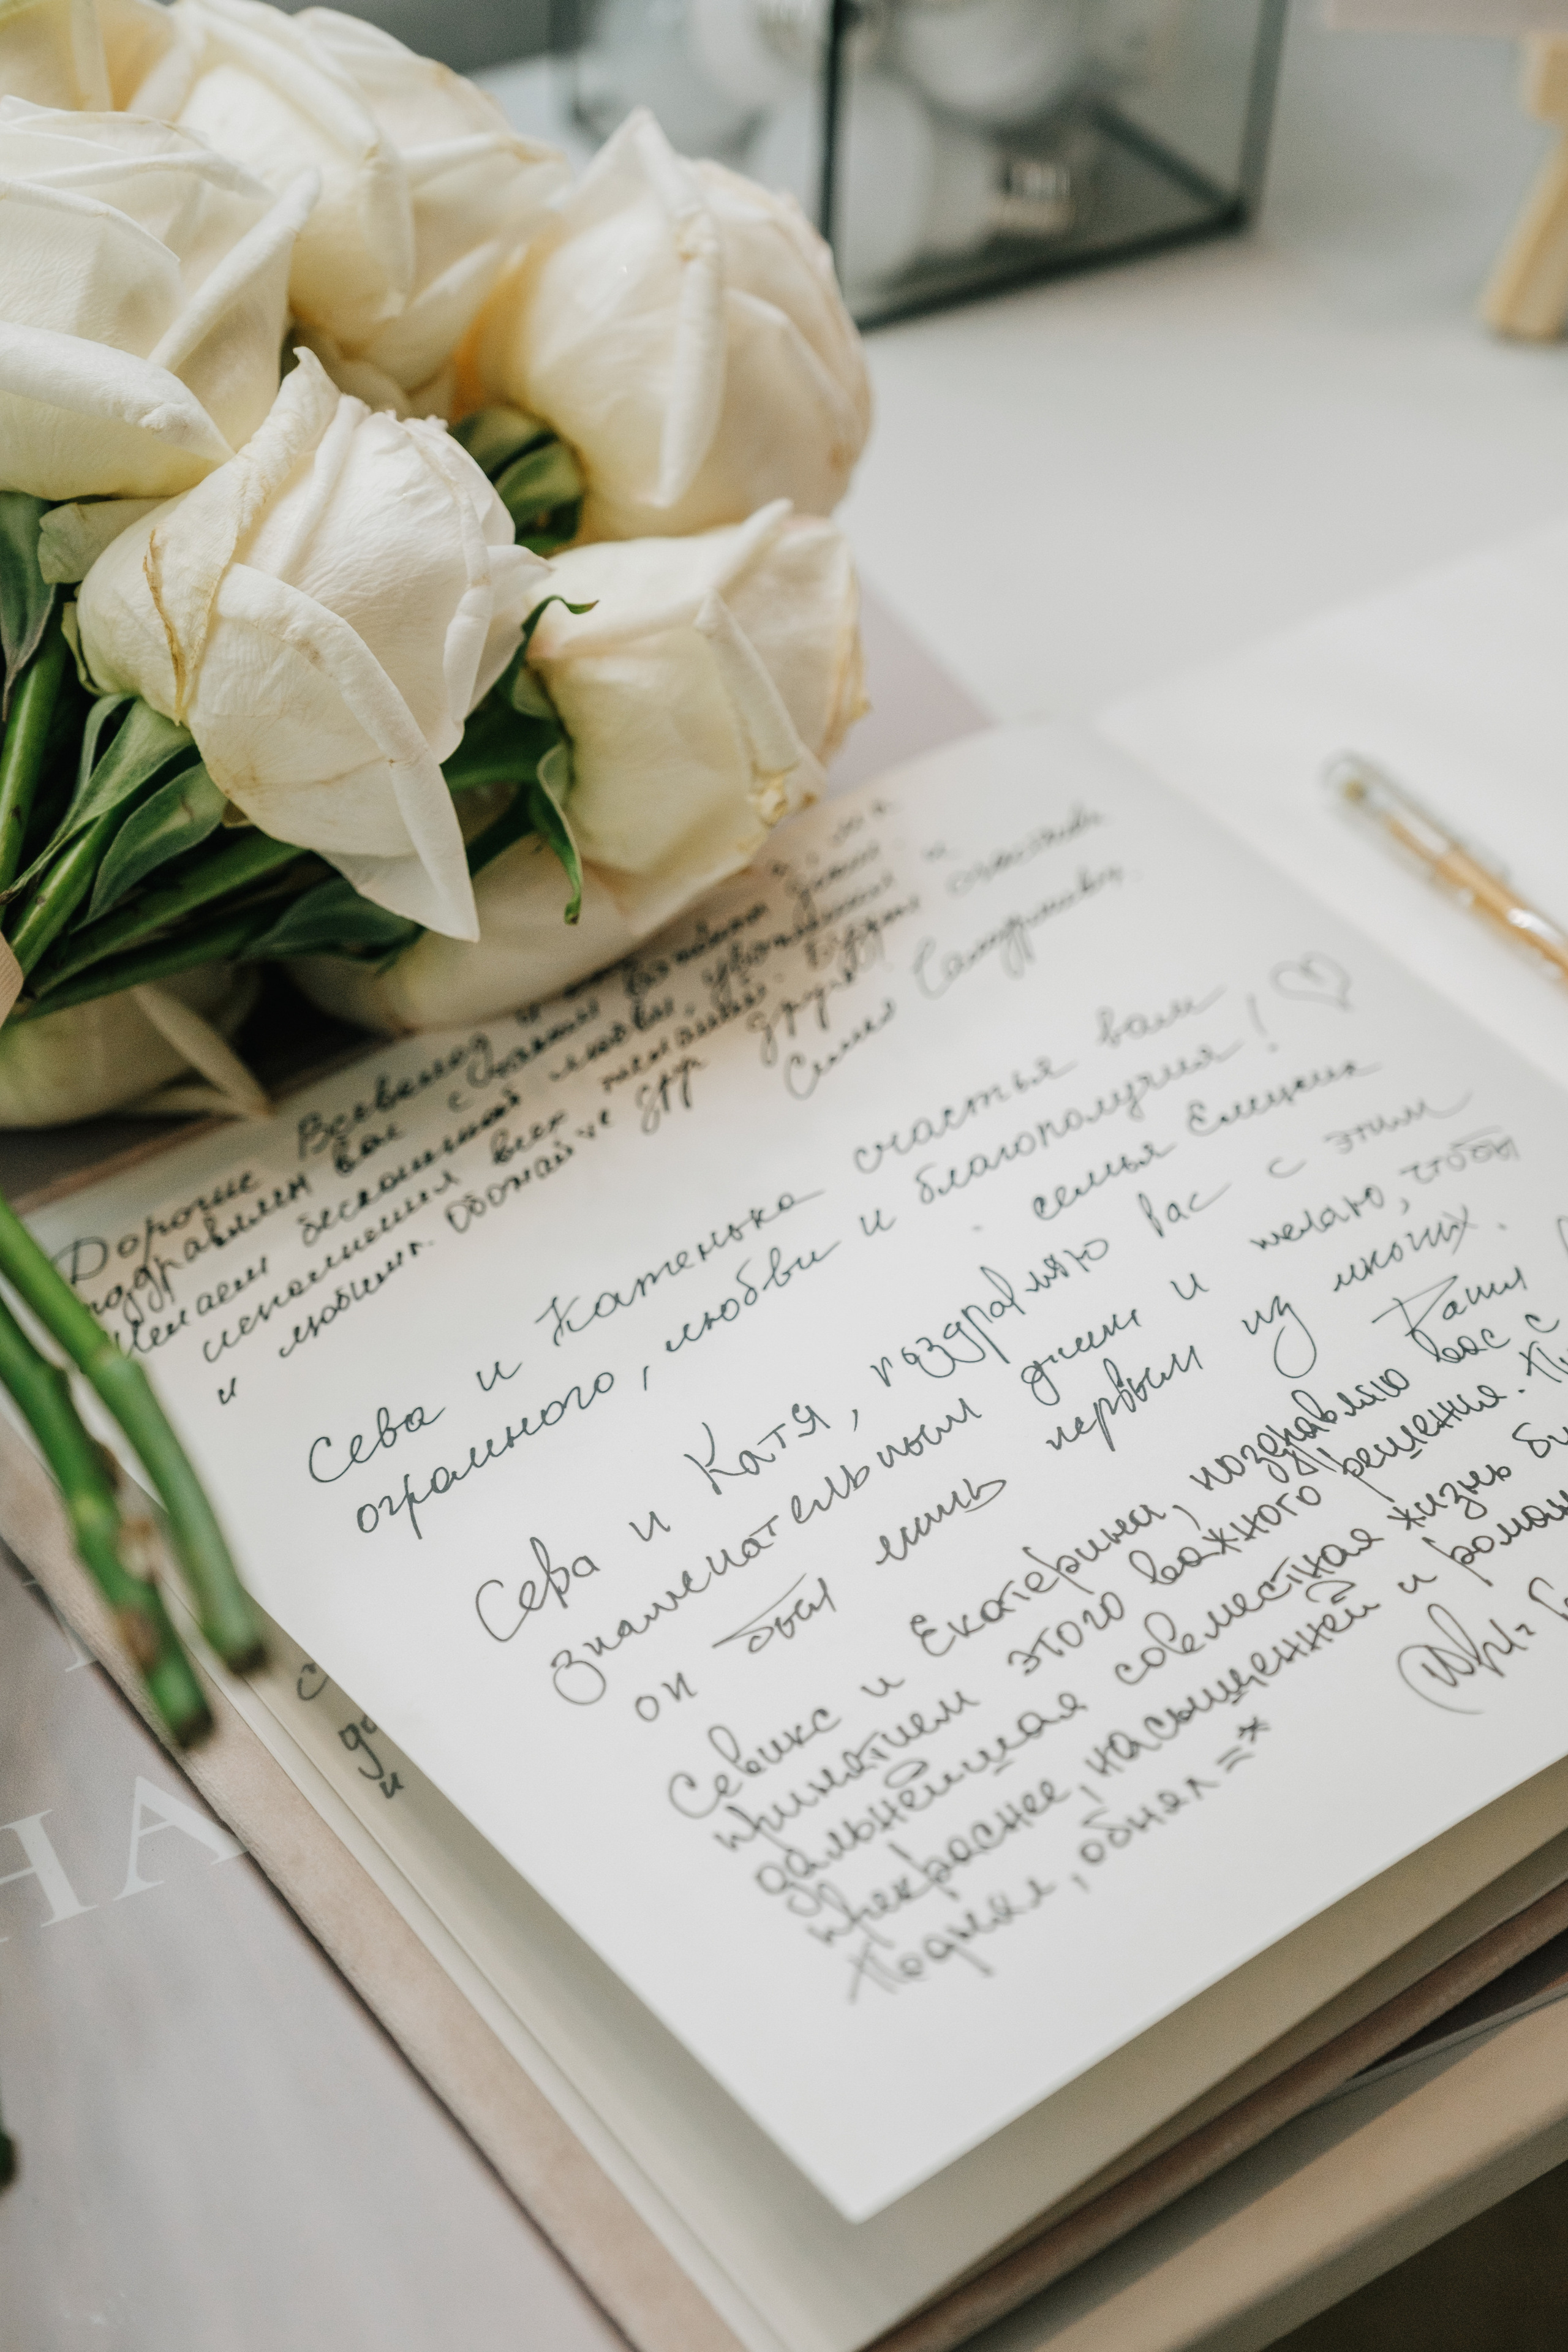 Дорогие Всеволод и
поздравляем вас с
Желаем бесконечной любви,
исполнения всех желаний. Будьте счастливы
и любимы. Обожайте друг друга
Семья
Сева и Катенька счастья вам
огромного, любви и благополучия!
семья Елецких
Сева и Катя, поздравляю вас с этим
знаменательным днем и желаю, чтобы
он был лишь первым из многих.
Севикс и Екатерина, поздравляю вас с
принятием этого важного решения.
дальнейшая совместная жизнь
прекраснее, насыщенней и
Поднял, обнял =*
с
до
и
НА